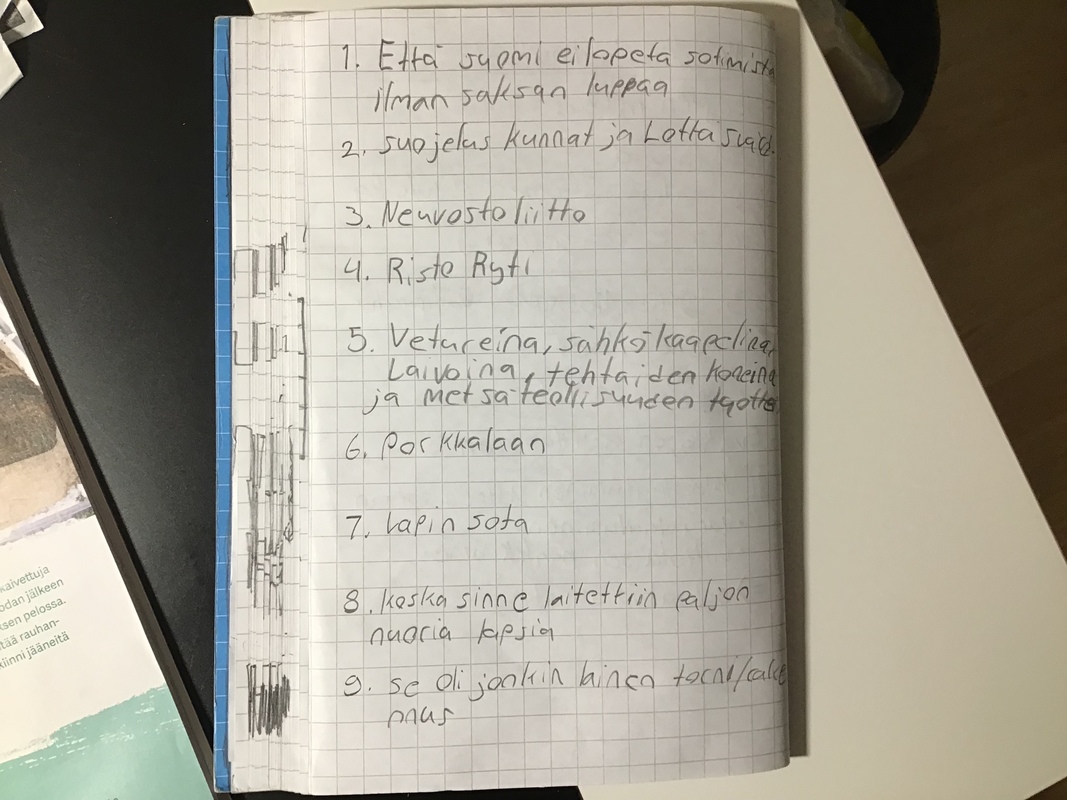 1. Että suomi ei lopeta sotimista
ilman saksan luppaa
2. suojelus kunnat ja Lotta Svärd.
3. Neuvostoliitto
4. Risto Ryti
5. Vetureina, sähkö kaapelina,
Laivoina, tehtaiden koneina
ja metsäteollisuuden tuotte
6. Porkkalaan
7. Lapin sota
8. koska sinne laitettiin paljon
nuoria lapsia
9. se oli jonkin lainen torni/rake
nnus
kaivettuja
odan jälkeen
ksen pelossa.
tää rauhan-
kiinni jääneitä